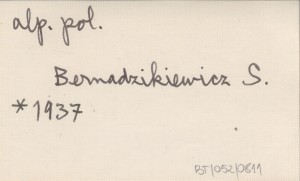 alp. pol.
Bernadzikiewicz S.
*1937
BT/052/0811